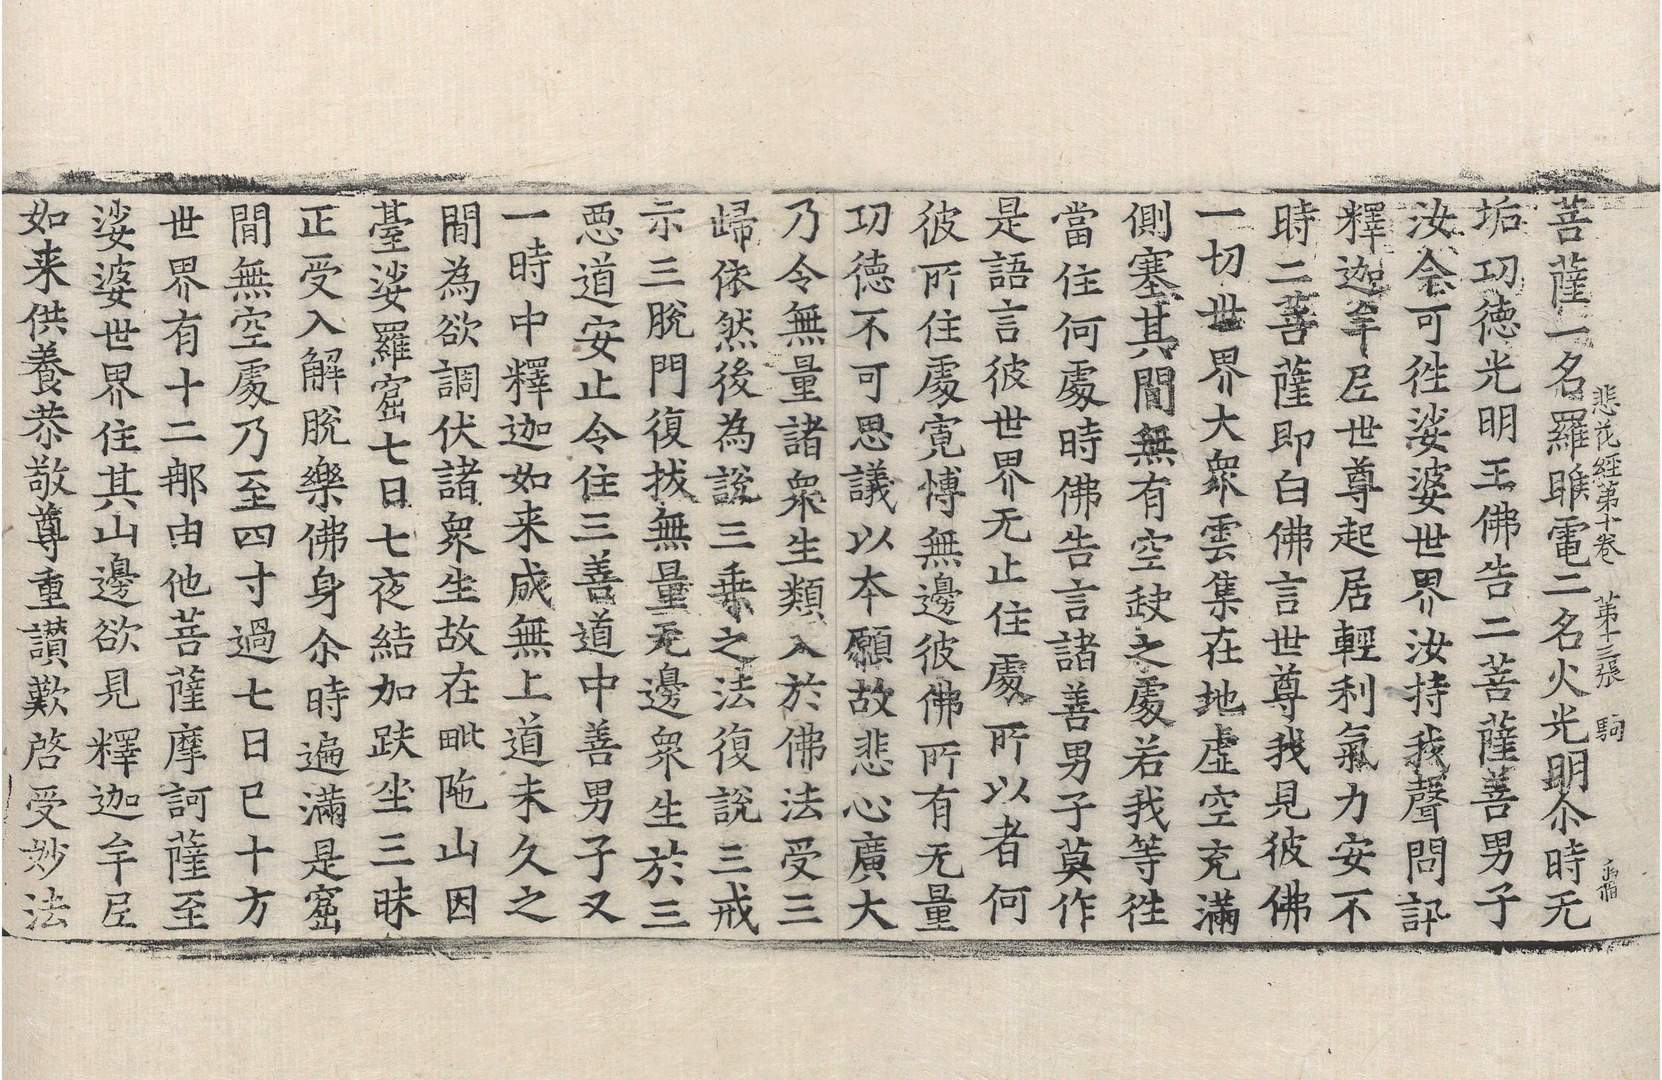 悲花經第十卷　第十三張　駒
菩薩一名羅睺電二名火光明尒時无
垢功徳光明王佛告二菩薩善男子
汝今可徃娑婆世界汝持我聲問訊
釋迦牟尼世尊起居輕利氣力安不
時二菩薩即白佛言世尊我見彼佛
一切世界大衆雲集在地虚空充滿
側塞其間無有空缺之處若我等徃
當住何處時佛告言諸善男子莫作
是語言彼世界无止住處所以者何
彼所住處寛博無邊彼佛所有无量
功徳不可思議以本願故悲心廣大
乃令無量諸衆生類入於佛法受三
歸依然後為説三乗之法復説三戒
示三脱門復拔無量无邊衆生於三
惡道安止令住三善道中善男子又
一時中釋迦如来成無上道未久之
間為欲調伏諸衆生故在毗陁山因
臺娑羅窟七日七夜結加趺坐三昧
正受入解脱樂佛身尒時遍滿是窟
間無空處乃至四寸過七日已十方
世界有十二那由他菩薩摩訶薩至
娑婆世界住其山邊欲見釋迦牟尼
如来供養恭敬尊重讃歎啓受妙法